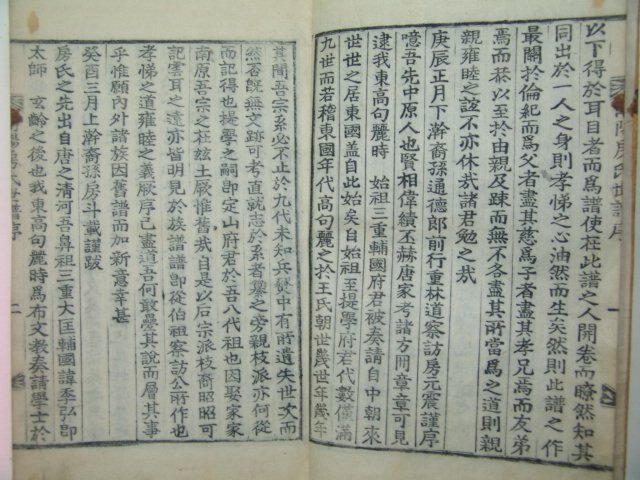 以下得於耳目者而爲譜使在此譜之人開卷而瞭然知其
同出於一人之身則孝悌之心油然而生矣然則此譜之作
最關於倫紀而爲父者盡其慈爲子者盡其孝兄焉而友弟
焉而恭以至於由親及踈而無不各盡其所當爲之道則親
親雍睦之誼不亦休哉諸君勉之哉
庚辰正月下瀚裔孫通德郞前行重林道察訪房元震謹序
噫吾先中原人也賢相偉績丕赫唐家考諸方冊章章可見
逮我東高句麗時 始祖三重輔國府君被奏請自中朝來
世世之居東國盖自此始矣自始祖至提學府君代數僅滿
九世而若稽東國年代高句麗之於王氏朝世幾世年幾年
其間吾宗系必不止於九代未知兵燹中有所遺失世次而
然否旣無文跡可考直就志於系者纂之旁親枝派亦何從
而記得也提學之嗣卽定山府君於吾八代祖也因娶家家
南原吾宗之在玆土厥惟舊哉自是以石宗派枝裔昭昭可
記雲耳之遠亦皆明見於族譜譜卽從伯祖察訪公所作也
孝悌之道雍睦之義厥序已盡道吾何敢疊其說而層其事
乎惟願內外諸族因舊譜而加新意幸甚
癸酉三月上瀚裔孫房斗載謹跋
房氏之先出自唐之淸河吾鼻祖三重大匡輔國諱季弘卽
太師 玄齡之後也我東高句麗時爲布文敎奏請學士於